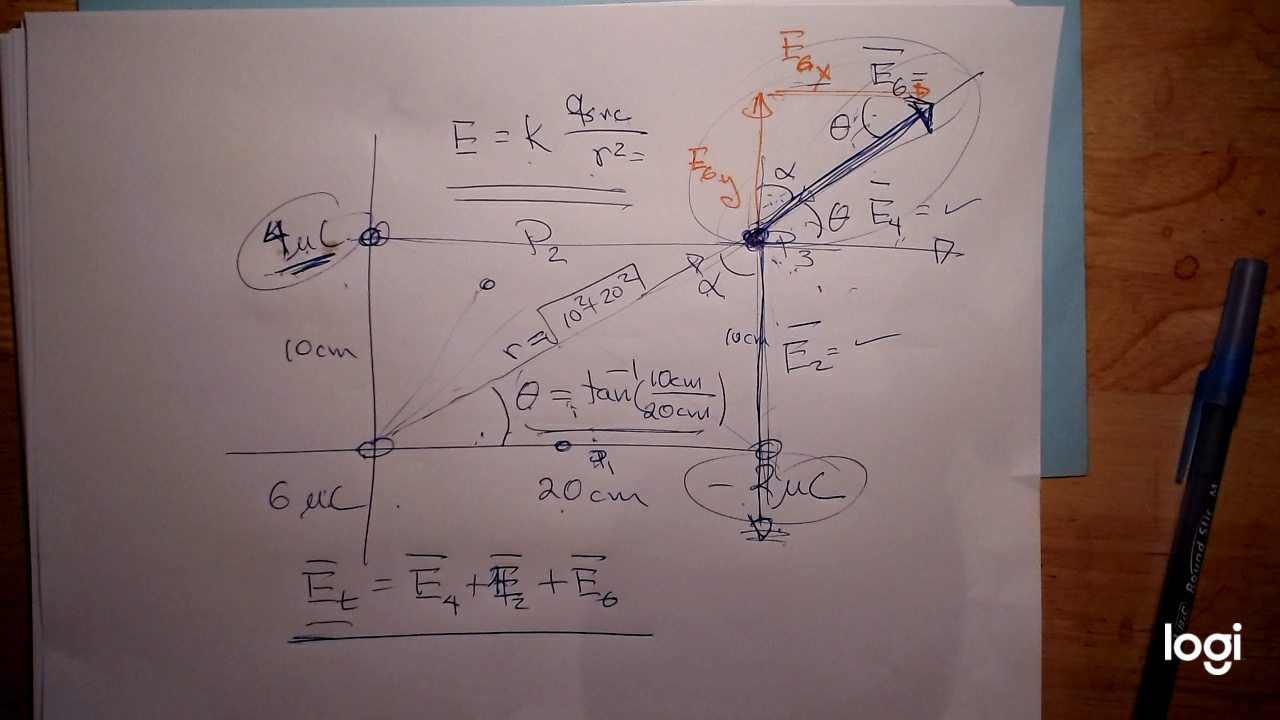 E6x
E̅6=
E = k qsrc/r²=
θ
α
E6y
θ
E̅4 = ✓
4μC
P2
P3
α
r = √10²+20²
10cm
10cm
E̅2 = ✓
θ = tan⁻¹(10cm/20cm)
P1
6 μC
20cm
-2μC
E̅t = E̅4 + E̅2 + E̅6
BIC Round Stic M
logi